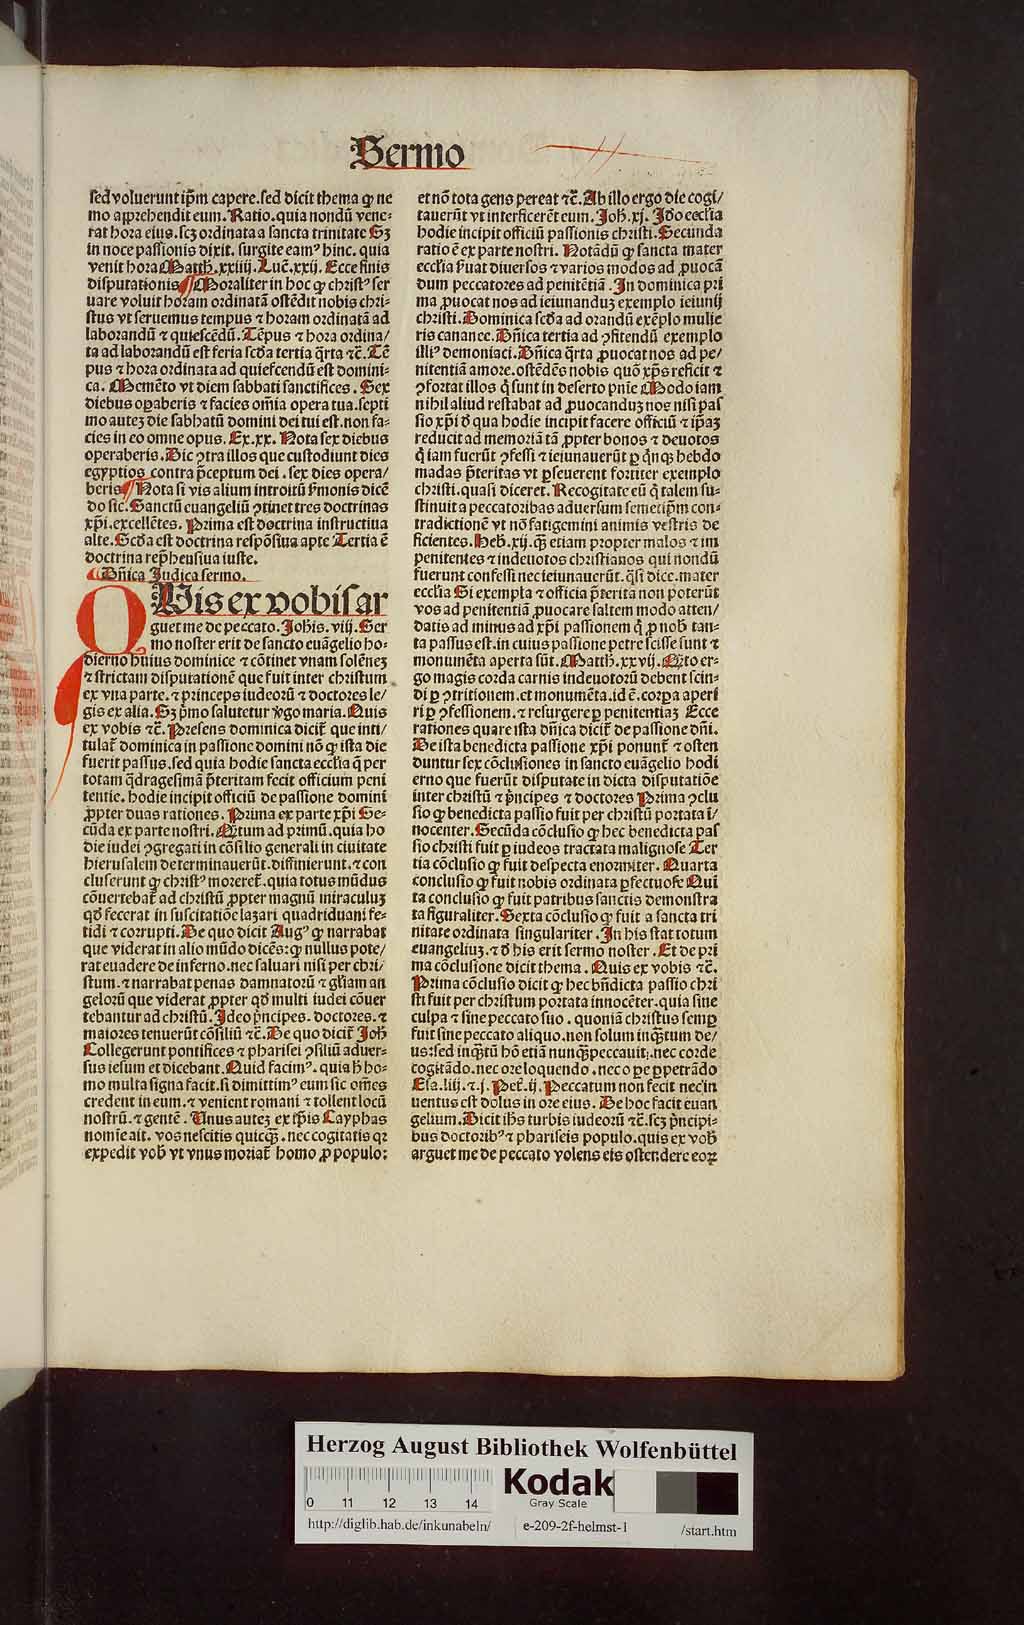 Sermo
sed voluerunt ip̄m capere. sed dicit thema ꝙ ne
mo apprehendit eum. Ratio. quia nondū vene-
rat hora eius. scꝫ ordinata a sancta trinitate Sꝫ
in nocte passionis dixit. surgite eamꝰ hinc. quia
venit hora Matth. xxiiij. Luc̄. xxij. Ecce finis
disputationis ¶ Moraliter in hoc ꝙ christꝰ ser
uare voluit horam ordinatā ostēdit nobis chri-
stus vt seruemus tempus ⁊ horam ordinatā ad
laborandū ⁊ quiescēdū. Tēpus ⁊ hora ordina/
ta ad laborandū est feria scd̄a tertia q̄rta ⁊c̄. Tē
pus ⁊ hora ordinata ad quiescendū est domini-
ca. Memēto vt diem sabbati sanctifices. Sex
diebus oꝑaberis ⁊ facies om̄ia opera tua. septi
mo auteꝫ die sabbatū domini dei tui est. non fa-
cies in eo omne opus. Ex. xx. Nota sex diebus
operaberis. Hic ꝯtra illos que custodiunt dies
egyptios contra p̄ceptum dei. sex dies opera/
beris ¶ Nota si vis alium introitū ẜmonis dicē
do sic. Sanctū euangeliū ꝯtinet tres doctrinas
xp̄i. excellētes. Prima est doctrina instructiua
alte. Scd̄a est doctrina respōsiua apte Tertia ē
doctrina rep̄hensiua iuste.
¶ Dn̄ica Judica sermo.
QVis ex vobis ar
guet me de peccato. Joh̄is. viij. Ser
mo noster erit de sancto euāgelio ho-
dierno huius dominice ⁊ cōtinet vnam solēneꝫ
⁊ strictam disputationē que fuit inter christum
ex vna parte. ⁊ princeps iudeorū ⁊ doctores le/
gis ex alia. Sꝫ p̄mo salutetur v̄go maria. Quis
ex vobis ⁊c̄. Presens dominica dicit̄ que inti/
tulat̄ dominica in passione domini nō ꝙ ista die
fuerit passus. sed quia hodie sancta eccl̄ia q̄ per
totam q̄dragesimā p̄teritam fecit officium peni
tentie. hodie incipit officiū de passione domini
ꝓpter duas rationes. Prima ex parte xp̄i Se-
cūda ex parte nostri. Q̄tum ad primū. quia ho
die iudei ꝯgregati in cōsilio generali in ciuitate
hierusalem determinauerūt. diffinierunt. ⁊ con
cluserunt ꝙ christꝰ moreret̄. quia totus mūdus
cōuertebat̄ ad christū ꝓpter magnū miraculuꝫ
qd̄ fecerat in suscitatiōe lazari quadriduani fe-
tidi ⁊ corrupti. De quo dicit Augꝰ ꝙ narrabat
que viderat in alio mūdo dicēs: ꝙ nullus pote/
rat euadere de inferno. nec saluari nisi per chri/
stum. ⁊ narrabat penas damnatorū ⁊ gl̄iam an
gelorū que viderat ꝓpter qd̄ multi iudei cōuer
tebantur ad christū. Ideo p̄ncipes. doctores. ⁊
maiores tenuerūt cōsiliū ⁊c̄. De quo dicit̄ Joh̄
Collegerunt pontifices ⁊ pharisei ꝯsiliū aduer-
sus iesum et dicebant. Quid facimꝰ. quia h̄ ho-
mo multa signa facit. si dimittimꝰ eum sic om̄es
credent in eum. ⁊ venient romani ⁊ tollent locū
nostrū. ⁊ gentē. Unus autez ex ip̄is Cayphas
nomīe ait. vos nescitis quicq̄ꝫ. nec cogitatis qꝛ
expedit vob̄ vt vnus moriat̄ homo ꝓ populo:
et nō tota gens pereat ⁊c̄. Ab illo ergo die cogi/
tauerūt vt interficerēt eum. Joh̄. xj. Jdo eccl̄ia
hodie incipit officiū passionis christi. Secunda
ratio ē ex parte nostri. Notādū ꝙ sancta mater
eccl̄ia ẜuat diuersos ⁊ varios modos ad ꝓuocā
dum peccatores ad penitētiā. In dominica pri
ma ꝓuocat nos ad ieiunanduꝫ exemplo ieiunij
christi. Dominica scd̄a ad orandū exēplo mulie
ris cananee. Dn̄ica tertia ad ꝯfitendū exemplo
illiꝰ demoniaci. Dn̄ica q̄rta ꝓuocat nos ad pe/
nitentiā amore. ostēdēs nobis quō xp̄s reficit ⁊
ꝯfortat illos q̄ sunt in deserto pn̄te Modo iam
nihil aliud restabat ad ꝓuocanduꝫ nos nisi pas
sio xp̄i d̄ qua hodie incipit facere officiū ⁊ ip̄aꝫ
reducit ad memoriā tā ꝓpter bonos ⁊ deuotos
q̄ iam fuerūt ꝯfessi ⁊ ieiunauerūt ꝑ q̄nqꝫ hebdo
madas p̄teritas vt ꝑseuerent fortiter exemplo
christi. quasi diceret. Recogitate eū q̄ talem su-
stinuit a peccatoribas aduersum semetip̄m con-
tradictionē vt nō fatigemini animis vestris de
ficientes. Heb̄. xij. q̄ꝫ etiam propter malos ⁊ im
penitentes ⁊ indeuotos christianos qui nondū
fuerunt confessi nec ieiunauerūt. q̄si dice. mater
eccl̄ia Si exempla ⁊ officia p̄terita non poterūt
vos ad penitentiā ꝓuocare saltem modo atten/
datis ad minus ad xp̄i passionem q̄ ꝓ nob̄ tan-
ta passus est. in cuius passione petre scisse sunt ⁊
monumēta aperta sūt. Matth. xxvij. Q̄to er-
go magis corda carnis indeuotorū debent scin-
di ꝑ ꝯtritionem. et monumēta. id ē. corꝑa aperi
ri ꝑ ꝯfessionem. ⁊ resurgere ꝑ penitentiaꝫ Ecce
rationes quare ista dn̄ica dicit̄ de passione dn̄i.
De ista benedicta passione xp̄i ponunt̄ ⁊ osten
duntur sex cōclusiones in sancto euāgelio hodi
erno que fuerūt disputate in dicta disputatiōe
inter christū ⁊ p̄ncipes ⁊ doctores Prima ꝯclu
sio ꝙ benedicta passio fuit per christū portata ī/
nocenter. Secūda cōclusio ꝙ hec benedicta pas
sio christi fuit ꝑ iudeos tractata malignose Ter
tia cōclusio ꝙ fuit despecta enormiter. Quarta
conclusio ꝙ fuit nobis ordinata ꝑfectuose Qui
ta conclusio ꝙ fuit patribus sanctis demonstra
ta figuraliter. Sexta cōclusio ꝙ fuit a sancta tri
nitate ordinata singulariter. In his stat totum
euangeliuꝫ. ⁊ d̄ his erit sermo noster. Et de pri
ma cōclusione dicit thema. Quis ex vobis ⁊c̄.
Prima cōclusio dicit ꝙ hec bn̄dicta passio chri
sti fuit per christum portata innocēter. quia sine
culpa ⁊ sine peccato suo. quoniā christus semꝑ
fuit sine peccato aliquo. non solum inq̄tum de/
us: sed inq̄tū hō etiā nunq̄ꝫ peccauit. nec corde
cogitādo. nec ore loquendo. nec oꝑe ꝑpetrādo
Esa. liij. ⁊. j. Pet̄. ij. Peccatum non fecit nec in
uentus est dolus in ore eius. De hoc facit euan
gelium. Dicit ih̄s turbis iudeorū ⁊c̄. scꝫ p̄ncipi-
bus doctoribꝰ ⁊ phariseis populo. quis ex vob̄
arguet me de peccato volens eis ostendere eoꝝ
Herzog August Bibliothek Wolfenbüttel
0 11 12 13 14
Kodak
Gray Scale
http://diglib.hab.de/inkunabeln/ e-209-2f-helmst-1 /start.htm